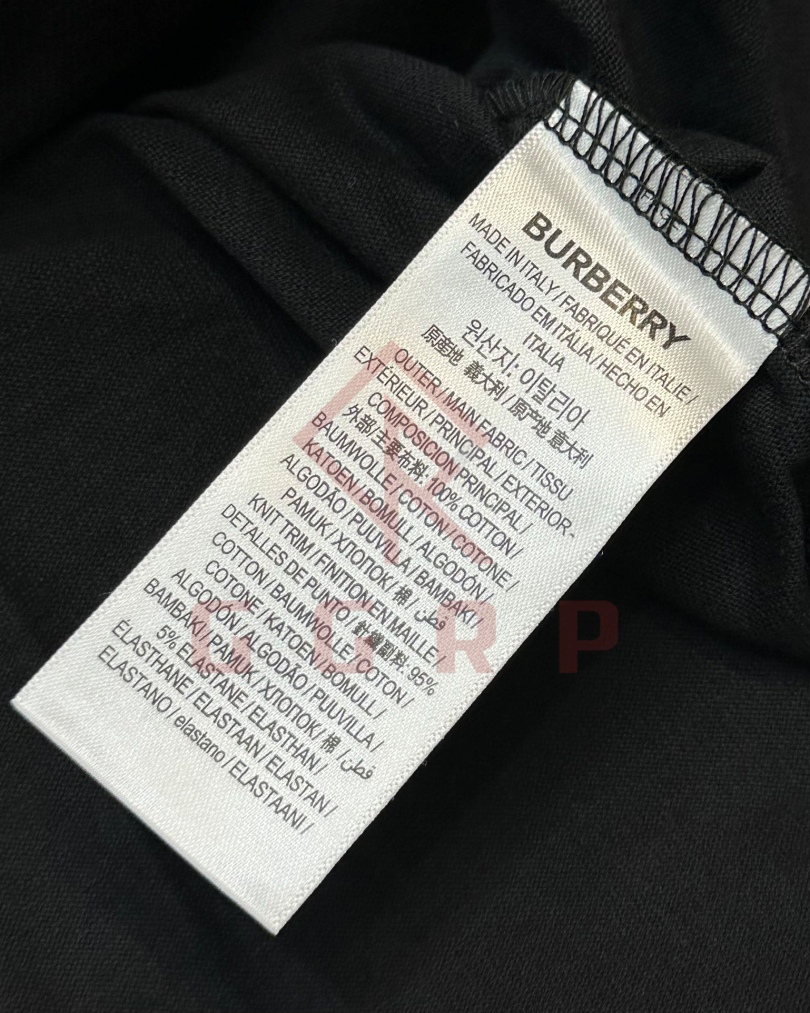 BURBERRY
MADE IN ITALY / FABRIQUÉ EN ITALIE /
FABRICADO EM ITALIA / HECHO EN
ITALIA
원산지: 이탈리아
原產地 義大利 / 原产地 意大利
OUTER / MAIN FABRIC / TISSU
EXTÉRIEUR / PRINCIPAL / EXTERIOR -
COMPOSICION PRINCIPAL /
外部/主要布料: 100% COTTON /
BAUMWOLLE / COTON / COTONE /
KATOEN / BOMULL / ALGODÓN /
ALGODÃO / PUUVILLA / BAMBAKI /
PAMUK / ХЛОПОК / 棉 / قطن
KNIT TRIM / FINITION EN MAILLE /
DETALLES DE PUNTO / 針織副料: 95%
COTTON / BAUMWOLLE / COTON /
COTONE / KATOEN / BOMULL /
ALGODÓN / ALGODÃO / PUUVILLA /
BAMBAKI / PAMUK / ХЛОПОК / 棉 / قطن
5% ELASTANE / ELASTHAN /
ÉLASTHANE / ELASTAAN / ELASTAN /
ELASTANO / elastano / ELASTAANI /
GGRP